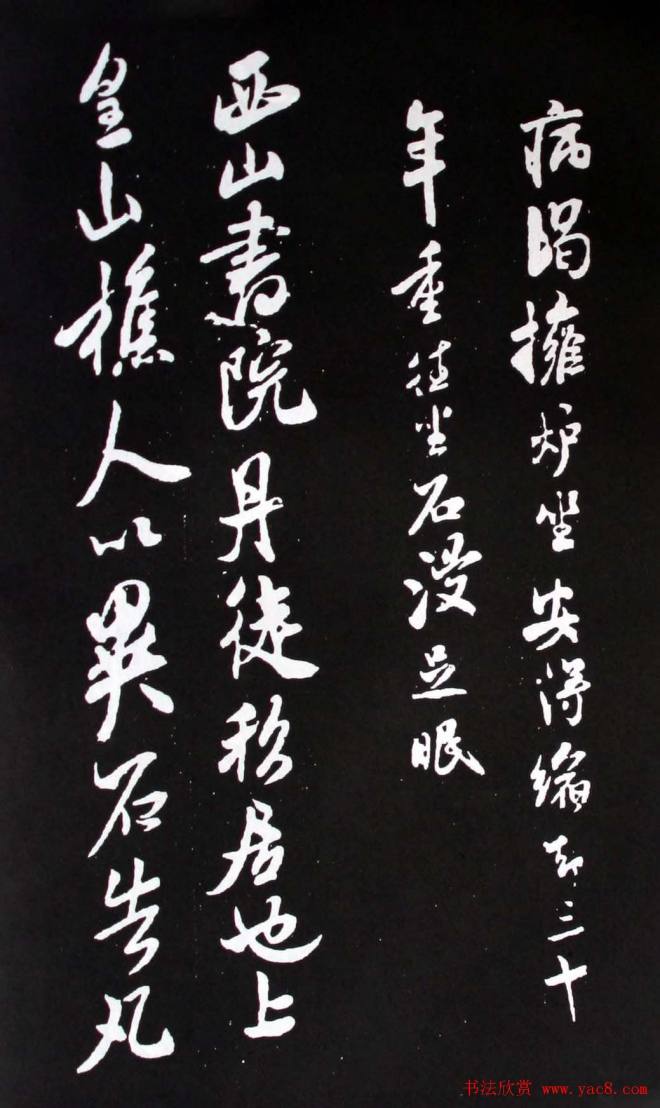 病暍擁炉坐安得縮却三十
年重往坐石浸足眠
西山書院丹徒私居也上
皇山樵人以異石告凡
书法欣赏 www.yac8.com